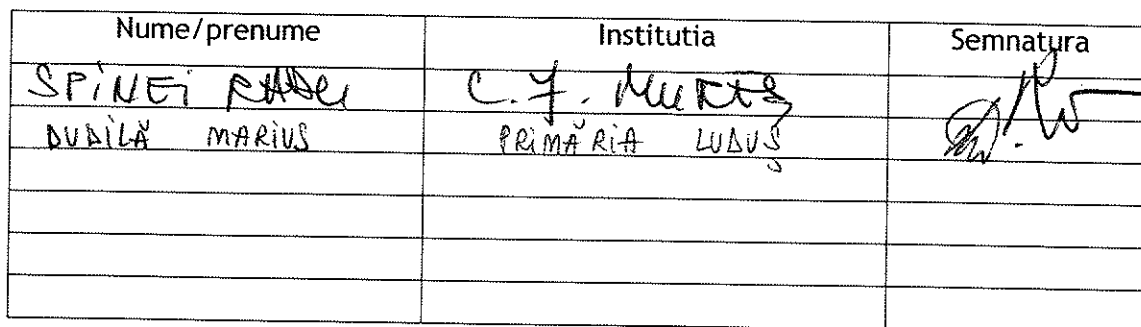 Nume/prenume Institutia Semnatura
SPINEI RADU C.J. MUREȘ
DUDILĂ MARIUS PRIMĂRIA LUDUȘ